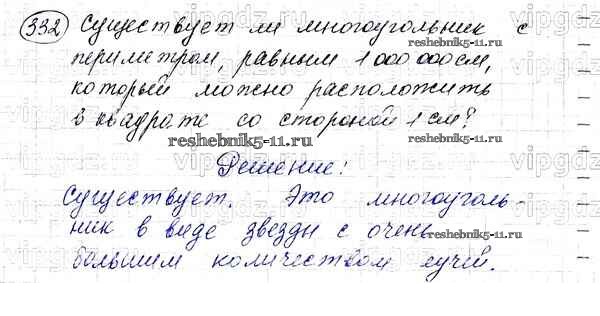 332 Существует ли многоугольник с
периметром, равным 1 000 000 см,
который можно расположить
в квадрате со стороной 1 см?
reshebnik5-11.ru
reshebnik5-11.ru
Решение:
Существует. Это многоуголь-
ник в виде звезды с очень
большим количеством лучей.
reshebnik5-11.ru
vipgdz